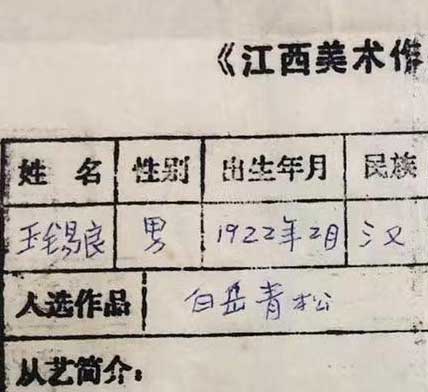 《江西美术作
姓 名 性别 出生年月 民族
王锡良 男 1922年2月 汉
入选作品 白岳青松
从艺简介: